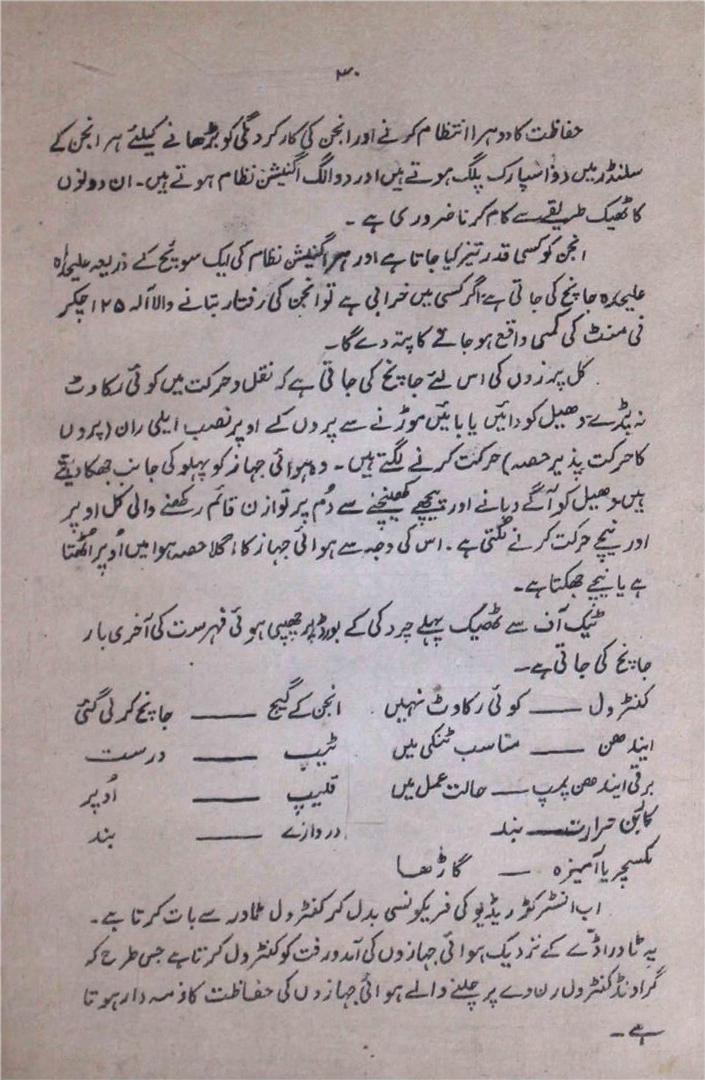 ۳۰
حفاظت کا دوہرا انتظام کرنے اور انجن کی کارکردگی کو بڑھانے کیلئے ہر انجن کے
سلنڈر میں دو اسپارک پلگ ہوتے ہیں اور دو الگ اگنیشن نظام ہوتے ہیں۔ ان دونوں
کا ٹھیک طریقے سے کام کرنا ضروری ہے۔
انجن کو کسی قدر تیز کیا جاتا ہے اور ہر اگنیشن نظام کی ایک سوئچ کے ذریعہ علیحدہ
علیحدہ جانچ کی جاتی ہے اگر کسی میں خرابی ہے تو انجن کی رفتار بتانے والا آلہ ۱۲۵ چکر
فی منٹ کی کمی واقع ہو جانے کا پتہ دے گا۔
کل پرزوں کی اس لئے جانچ کی جاتی ہے کہ نقل و حرکت میں کوئی رکاوٹ
نہ پڑے۔ وھیل کو دائیں یا بائیں موڑنے سے پروں کے اوپر نصب ایلی ران (پروں
کا حرکت پذیر حصہ) حرکت کرنے لگتے ہیں۔ وہ ہوائی جہاز کو پہلو کی جانب جھکا دیتے
ہیں وھیل کو آگے دبانے اور پیچھے کھینچنے سے دُم پر توازن قائم رکھنے والی کل اوپر
اور نیچے حرکت کرنے لگتی ہے۔ اس کی وجہ سے ہوائی جہاز کا اگلا حصہ ہوا میں اُوپر اُٹھتا
ہے یا نیچے جھکتا ہے۔
ٹیک آف سے ٹھیک پہلے چردکی کے بورڈ پر چھپی ہوئی فہرست کی آخری بار
جانچ کی جاتی ہے۔
کنٹرول —— کوئی رکاوٹ نہیں انجن کے گیج —— جانچ کر لی گئی
ایندھن —— مناسب ٹنکی میں ٹیپ —— درست
برقی ایندھن پمپ —— حالت عمل میں فلیپ —— اُوپر
کابن حرارت —— بند دروازے —— بند
مکسچر یا آمیزہ —— گاڑھا
اب انسٹرکٹر ریڈیو کی فریکونسی بدل کر کنٹرول ٹاور سے بات کرتا ہے۔
یہ ٹاور اڈّے کے نزدیک ہوائی جہازوں کی آمدورفت کو کنٹرول کرتا ہے جس طرح کہ
گراونڈ کنٹرول رن وے پر چلنے والے ہوائی جہازوں کی حفاظت کا ذمہ دار ہوتا
ہے۔